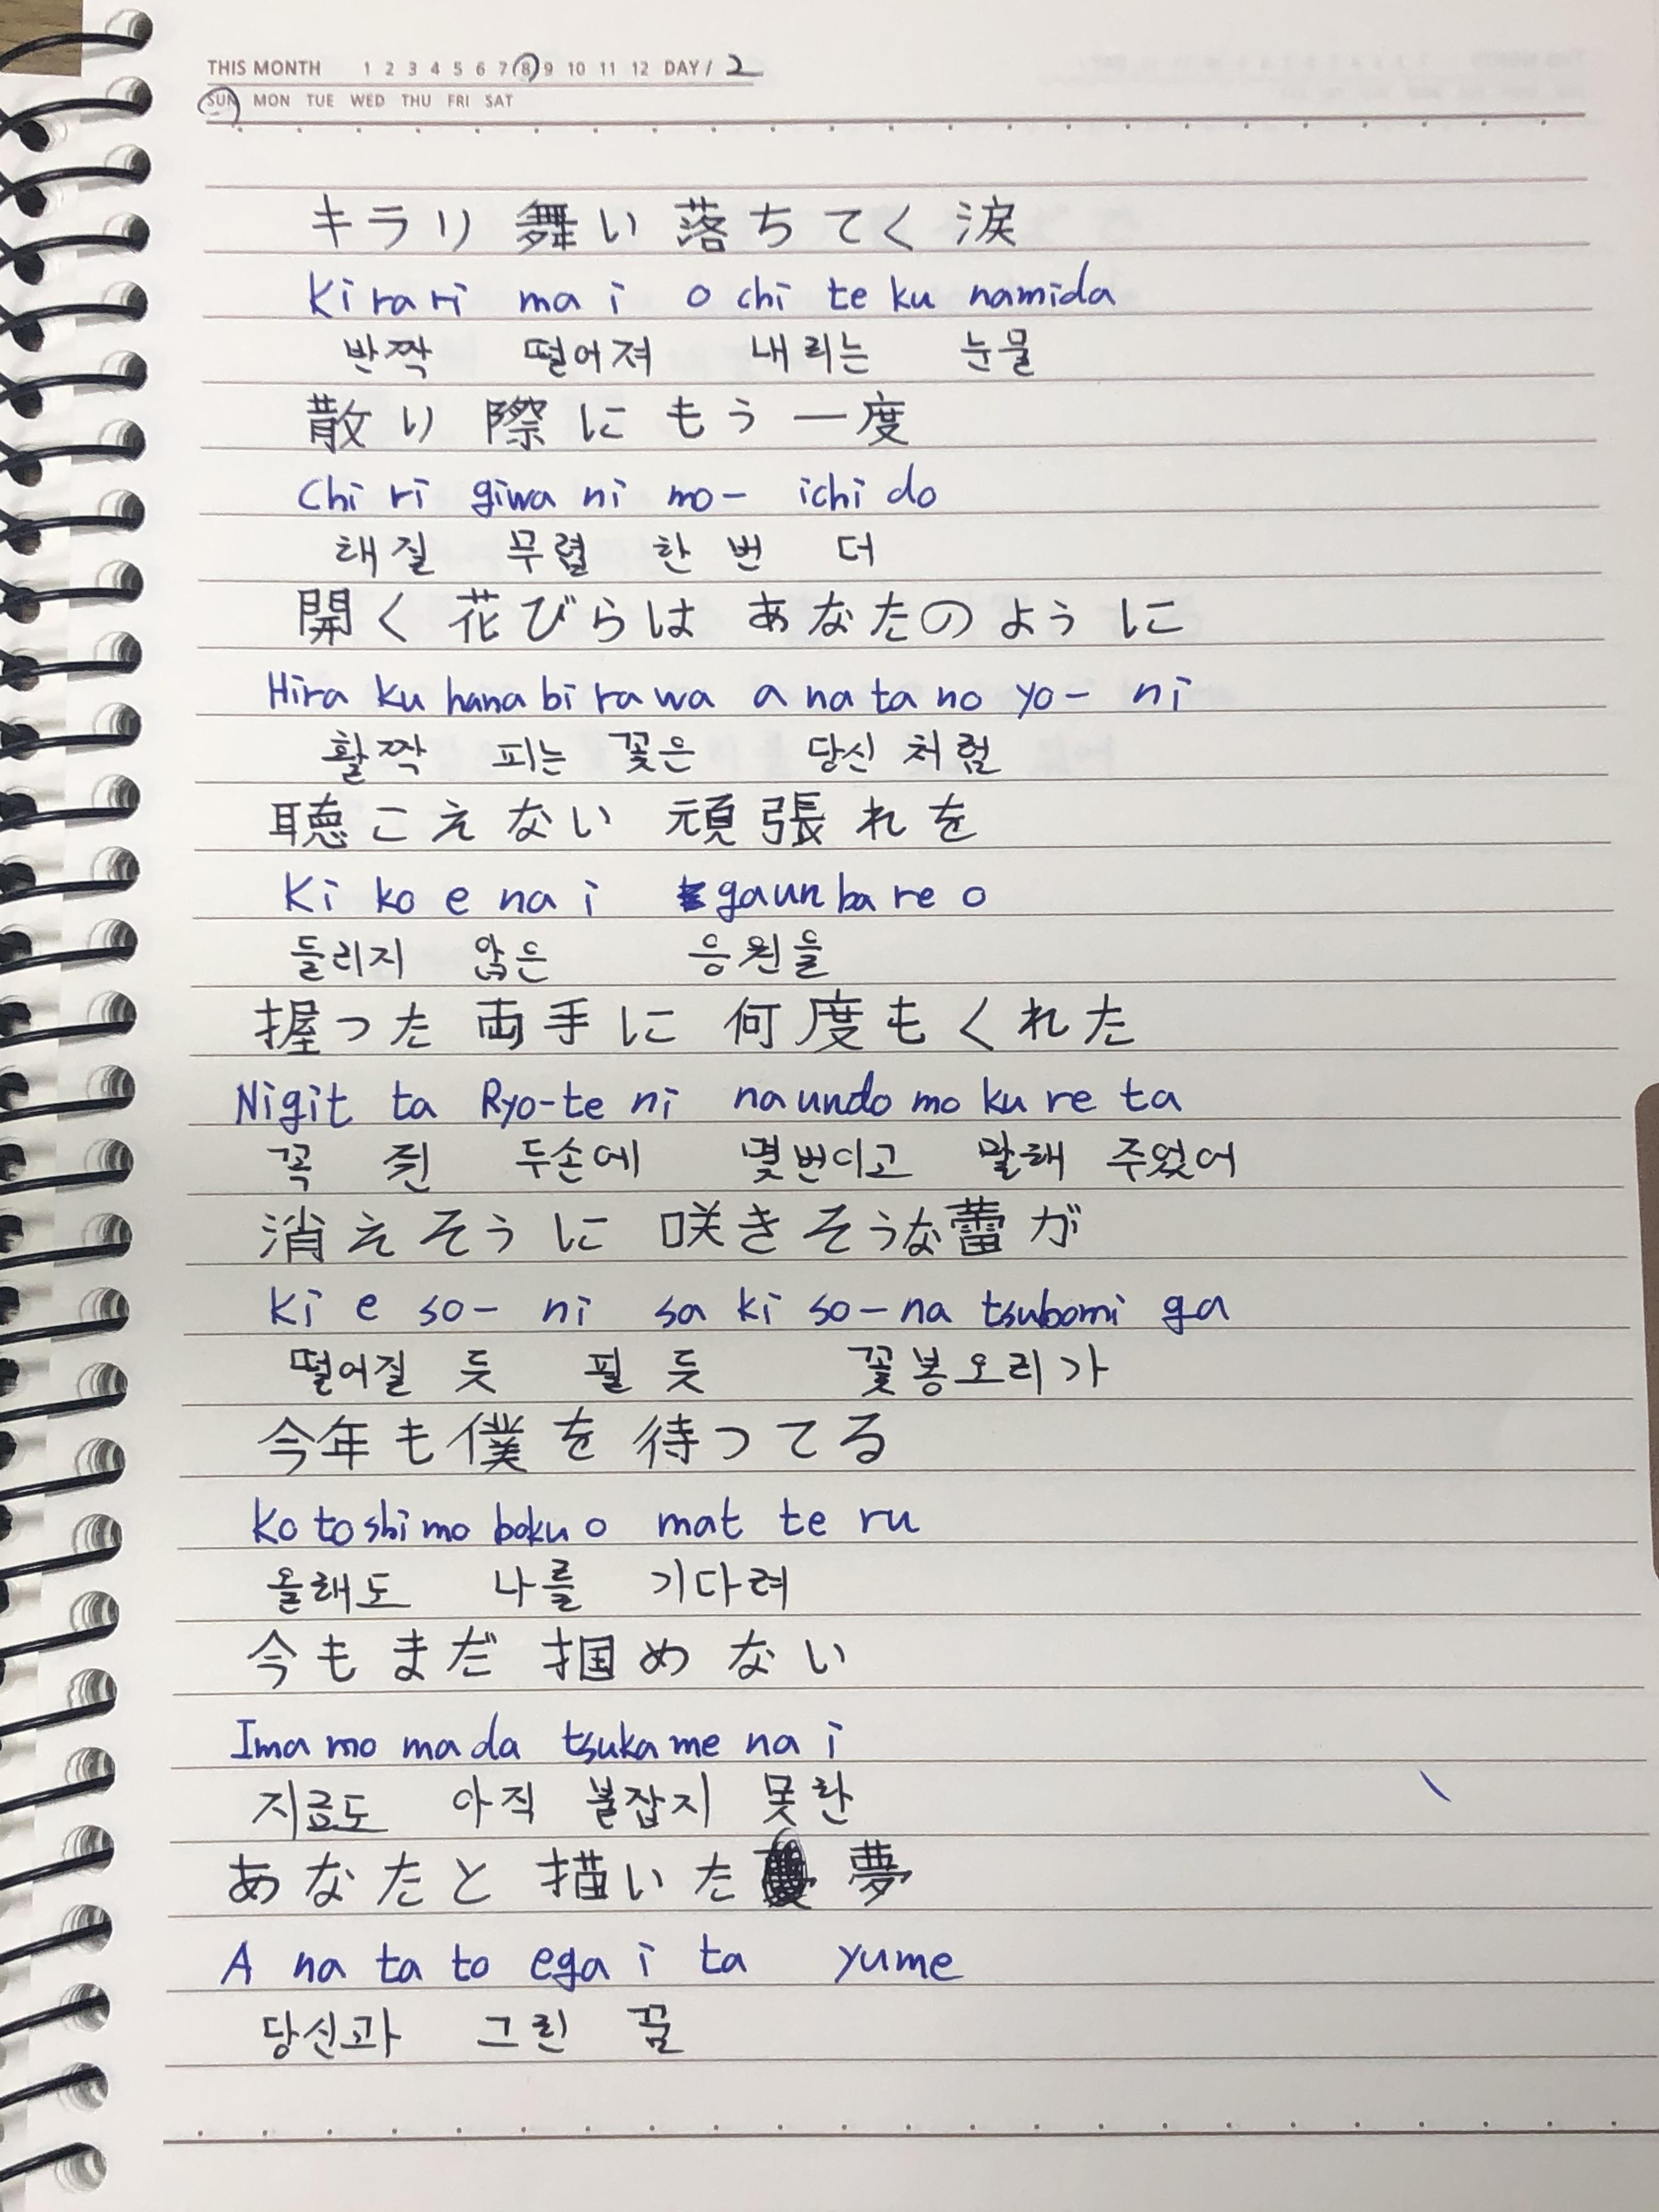 THIS MONTH 1 2 3 4 5 6 7 8 9 10 11 12 DAY/ 2
SUN MON TUE WED THU FRI SAT
キラリ 舞い 落ちてく 涙
Kirari mai ochi te ku namida
반짝 떨어져 내리는 눈물
散り 際に もう 一度
Chi ri giwa ni mo- ichi do
해질 무렵 한 번 더
開く 花びらは あなたの ように
Hira ku hana bi ra wa a na ta no yo- ni
활짝 피는 꽃은 당신 처럼
聴こえない 頑張れを
Ki ko e na i gaun ba re o
들리지 않은 응원을
握った 両手に 何度もくれた
Nigit ta Ryo-te ni naundo mo ku re ta
꼭 쥔 두손에 몇번이고 말해 주었어
消えそうに 咲きそうな蕾が
Ki e so- ni sa ki so-na tsubomi ga
떨어질 듯 필 듯 꽃봉오리가
今年も僕を 待ってる
Ko to shi mo boku o mat te ru
올해도 나를 기다려
今もまだ 掴めない
Ima mo ma da tsuka me na i
지금도 아직 붙잡지 못한
あなたと 描いた 夢
A na ta to ega i ta yume
당신과 그린 꿈